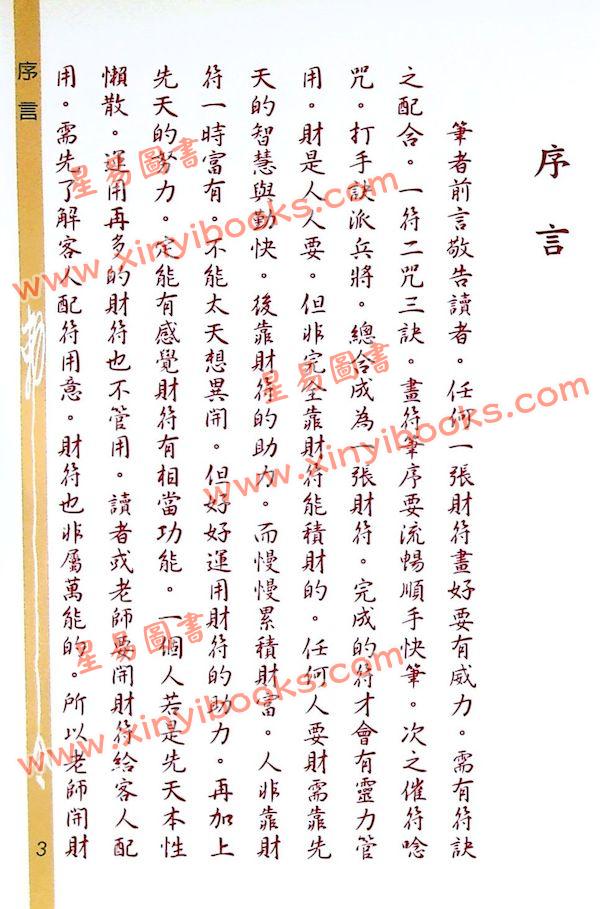 序言
筆者前言敬告讀者。任何一張財符畫好要有威力。需有符訣
之配合。一符二咒三訣。畫符筆序要流暢順手快筆。次之催符唸
咒。打手訣派兵將。總合成為一張財符。完成的符才會有靈力管
用。財是人人要。但非完全靠財符能積財的。任何人要財需靠先
天的智慧與勤快。後靠財符的助力。而慢慢累積財富。人非靠財
符一時富有。不能太天想異開。但好好運用財符的助力。再加上
先天的努力。定能有感覺財符有相當功能。一個人若是先天本性
懶散。運用再多的財符也不管用。讀者或老師要開財符給客人配
用。需先了解客人配符用意。財符也非屬萬能的。所以老師開財
序言
3
星易圖書
www.xinyibooks.com
星易圖書
www.xinyibooks.com
星易圖書
www.xinyibooks.com